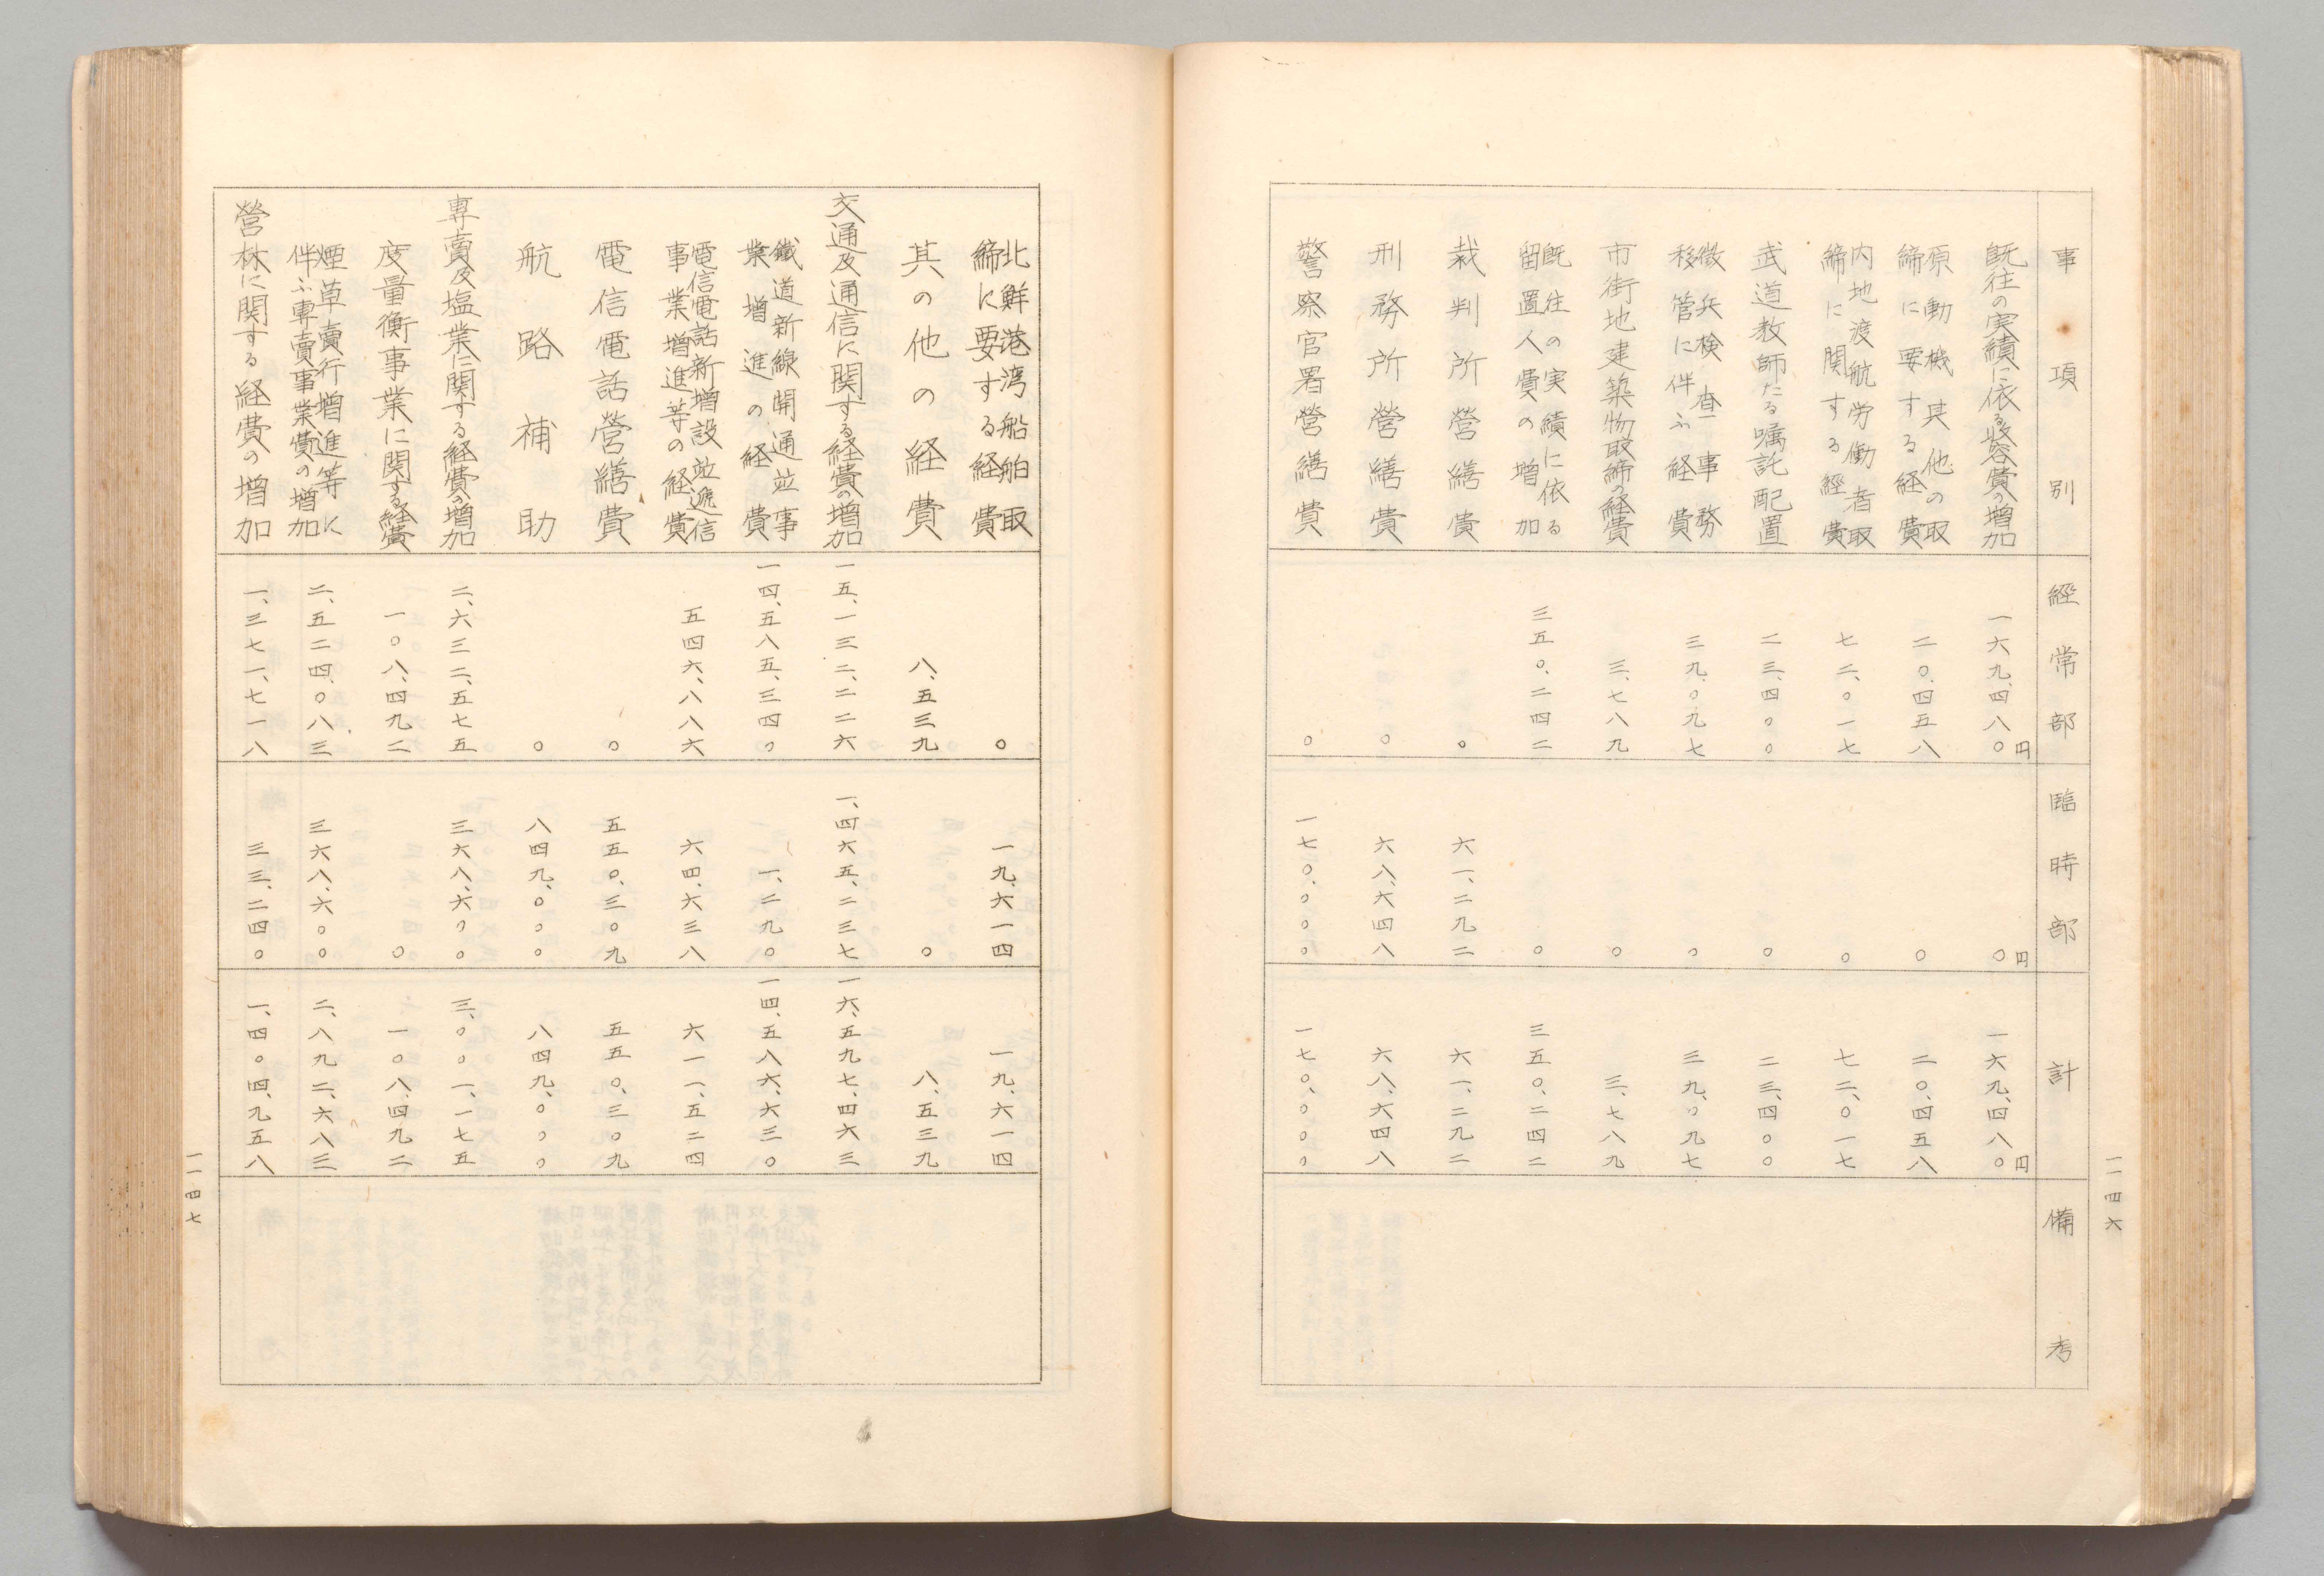 事項別
経常部
臨時部
計
備考
既往の実績に依る収容費の増加
一六九、四八〇円
〇円
一六九、四八〇円
原動機其他の取
締に要する経費
二〇、四五八
〇
二〇、四五八
内地渡航労働者取
締に関する経費
七二、〇一七
〇
七二、〇一七
武道教師たる嘱託配置
二三、四〇〇
〇
二三、四〇〇
徴兵検査事務
移管に伴ふ経費
三九、〇九七
〇
三九、〇九七
市街地建築物取締の経費
三、七八九
〇
三、七八九
既往の実績に依る
留置人費の増加
三五〇、二四二
〇
三五〇、二四二
裁判所營繕費
〇
六一、二九二
六一、二九二
刑務所營繕費
〇
六八、六四八
六八、六四八
警察官署營繕費
〇
一七〇、〇〇〇
一七〇、〇〇〇
一一四六
北鮮港湾船舶取
締に要する経費
〇
一九、六一四
一九、六一四
其の他の経費
八、五三九
〇
八、五三九
交通及通信に関する経費の増加
一五、一三二、二二六
一、四六五、二三七
一六、五九七、四六三
鐵道新線開通並事
業増進の経費
一四、五八五、三四〇
一、二九〇
一四、五八六、六三〇
電信電話新増設並逓信
事業増進等の経費
五四六、八八六
六四、六三八
六一一、五二四
電信電話營繕費
〇
五五〇、三〇九
五五〇、三〇九
航路補助
〇
八四九、〇〇〇
八四九、〇〇〇
専賣及塩業に関する経費の増加
二、六三二、五七五
三六八、六〇〇
三、〇〇一、一七五
度量衡事業に関する経費
一〇八、四九二
〇
一〇八、四九二
煙草賣行増進等に
伴ふ専賣事業費の増加
二、五二四、〇八三
三六八、六〇〇
二、八九二、六八三
營林に関する経費の増加
一、三七一、七一八
三三、二四〇
一、四〇四、九五八
一一四七